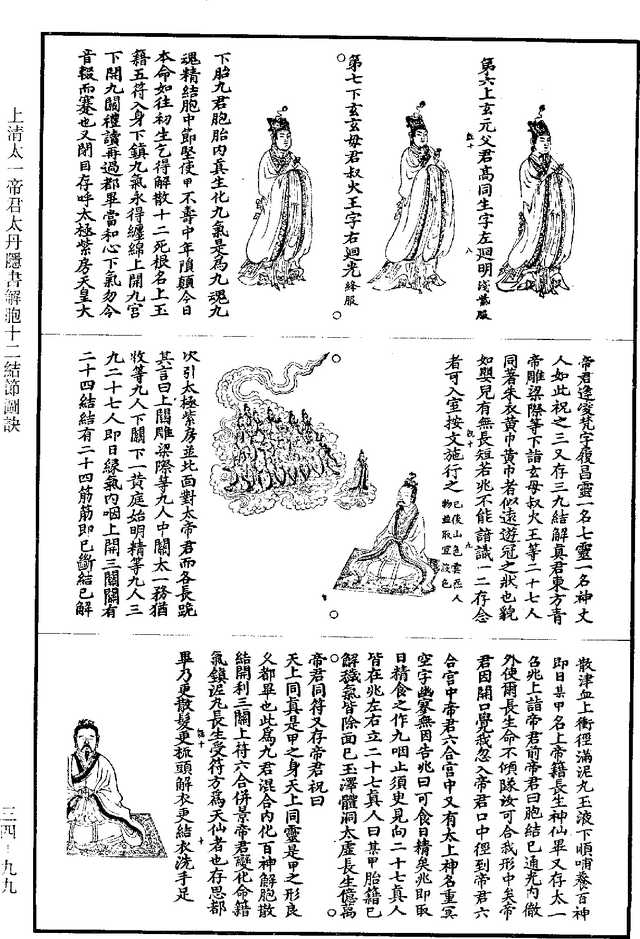 上清太一帝君太丹隱書解胞十二結節圖訣
三四－九九
第六上玄元父君高同生字左迴明淺紫服
第七下玄玄母君叔火王字右迴光絳服
下胎九君胞胎內真生化九氣是為九魂九
魂精結胞中節堅使甲不壽中年隕顛今日
本命如往初生乞得解散十二死根名上玉
籍五符入身下鎮九氣永得纏綿上開九宮
下開九關禮讀再過都畢當和心下氣勿令
音輟而蹇也又閉目存呼太極紫房天皇大
帝君逢凌梵字履昌靈一名七靈一名神丈
人如此祝之三又存三九結解真君東方青
帝雕梁際等下詣玄母叔火王等二十七人
同著朱衣黃巾黃巾者似遠遊冠之狀也貌
如嬰兒有無長短若兆不能諳識一二存念
者可入室按文施行之已後山色雲燕人
物並取宜設色
次引太極紫房並北面對太帝君而各長跪
其言曰上關雕梁際等九人中關太一務猶
收等九人下關下一黃庭始明精等九人三
九二十七人即日緣氣內咽上開三關關有
二十四結結有二十四筋筋即已斷結已解
散津血上衝徑滿泥丸玉液下順哺養百神
即日某甲名上帝籍長生神仙畢又存太一
名兆上詣帝君前帝君曰胞結已通光內徹
外使爾長生命不傾隊汝可合我形中矣帝
君因開口嚳我忽入帝君口中徑到帝君六
合宮中帝君六合宮中又有太上神名重冥
空字幽寥無因告兆曰可食日精矣兆即取
日精食之作九咽止須臾見向二十七真人
皆在兆左右立二十七真人曰某甲胎籍已
解穢氣皆除面已玉澤體洞太虛長生億萬
帝君同符又存帝君祝曰
天上同真是甲之身天上同靈是甲之形良
久都畢也此為九君混合內化百神解胞散
結開利三關上符六合併景帝君變化命籍
氣鎮泥丸長生受符方為天仙者也存思都
畢乃更散髮更梳頭解衣更結衣洗手足